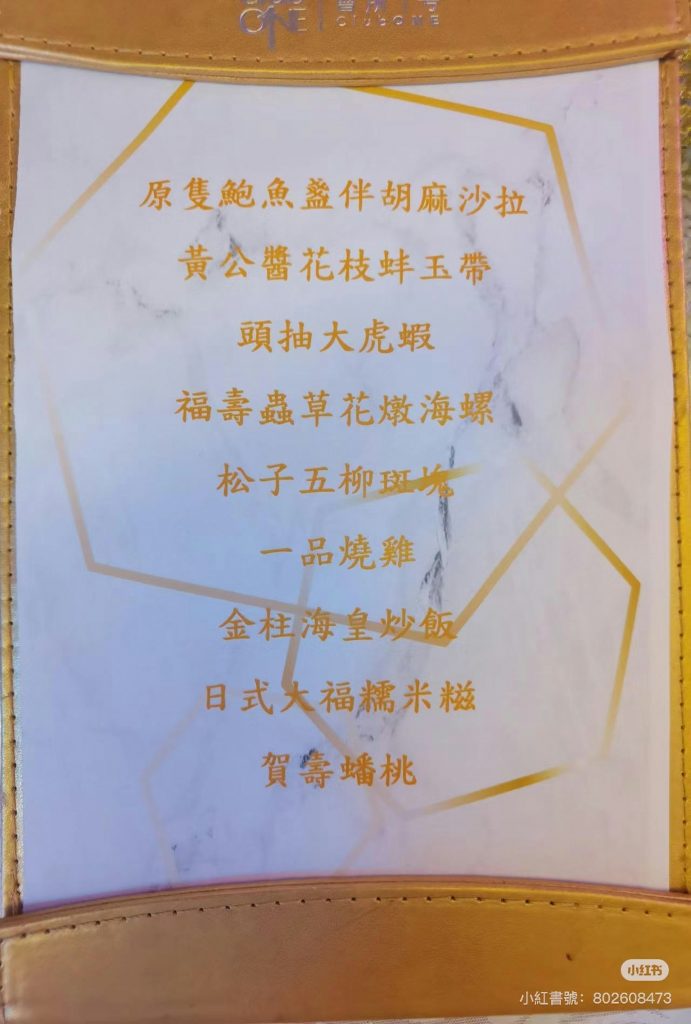 ONE
CLUB ONE
原隻鮑魚盞伴胡麻沙拉
黃公醬花枝蚌玉帶
頭抽大虎蝦
福壽蟲草花燉海螺
松子五柳斑塊
一品燒雞
金柱海皇炒飯
日式大福糯米糍
賀壽蟠桃
小红书
小紅書號: 802608473